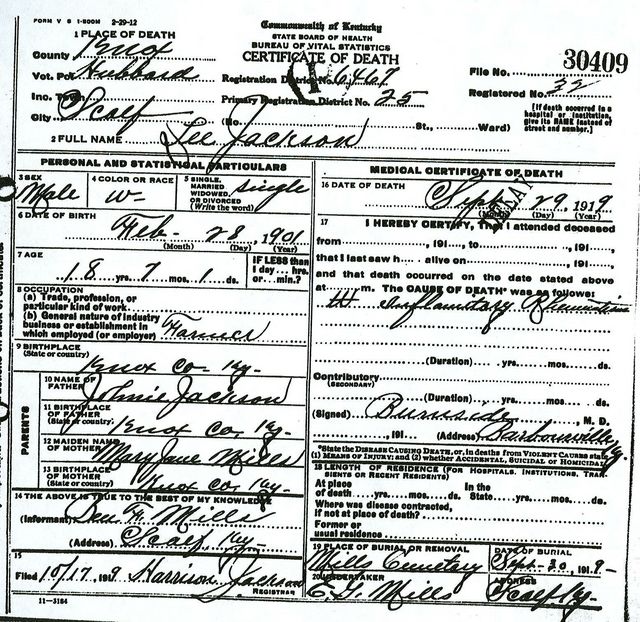 FORM V S 1-500M 2-29-12
Commonwealth of Kentucky
STATE BOARD OF HEALTH
BUREAU OF VITAL STATISTICS
CERTIFICATE OF DEATH
1 PLACE OF DEATH
County Knox
Vot. Pct Hubbard
Inc. Town
City Scalf
Registration District No. 6467
Primary Registration District No. 25
File No. 30409
Registered No. 32
(No. St., Ward)
[If death occurred in a hospital or institution, give its NAME instead of street and number.]
2 FULL NAME Lee Jackson
PERSONAL AND STATISTICAL PARTICULARS
3 SEX Male
4 COLOR OR RACE W-
5 SINGLE, MARRIED WIDOWED, OR DIVORCED (Write the word) single
6 DATE OF BIRTH Feb- 28, 1901
(Month) (Day) (Year)
7 AGE 18 yrs. 7 mos. 1 ds.
IF LESS than 1 day... hrs. or... min.?
8 OCCUPATION
(a) Trade, profession, or particular kind of work
(b) General nature of industry business or establishment in which employed (or employer) Farmer
9 BIRTHPLACE (State or country) Knox Co Ky-
PARENTS
10 NAME OF FATHER Johnie Jackson
11 BIRTHPLACE OF FATHER (State or country) Knox Co, Ky-
12 MAIDEN NAME OF MOTHER Mary Jane Mills
13 BIRTHPLACE OF MOTHER (State or country) Knox Co, Ky-
14 THE ABOVE IS TRUE TO THE BEST OF MY KNOWLEDGE
(Informant) F. Mills
(Address) Scalf, Ky-
15
Filed 10/17, 1919 Harrison Jackson
REGISTRAR
11-3184
MEDICAL CERTIFICATE OF DEATH
16 DATE OF DEATH Sept 29, 1919
(Month) (Day) (Year)
17 I HEREBY CERTIFY, That I attended deceased
from , 191 , to , 191 ,
that I last saw h alive on , 191 ,
and that death occurred on the date stated above
at m. The CAUSE OF DEATH* was as follows:
Inflamitory Rheumatism
(Duration) yrs. mos. ds.
Contributory (SECONDARY)
(Duration) yrs. mos. ds.
(Signed) Burnside, M. D.
, 191 (Address) Barbourville Ky
*State the DISEASE CAUSING DEATH, or, in deaths from VIOLENT CAUSES state (1) MEANS OF INJURY; and (2) whether ACCIDENTAL, SUICIDAL or HOMICIDAL
18 LENGTH OF RESIDENCE (FOR HOSPITALS, INSTITUTIONS, TRANSIENTS OR RECENT RESIDENTS)
At place of death yrs. mos. ds. In the State yrs. mos. ds.
Where was disease contracted, if not at place of death?
Former or usual residence
19 PLACE OF BURIAL OR REMOVAL Mills Cemetery
DATE OF BURIAL Sept-30, 1919-
20 UNDERTAKER Mills
ADDRESS Scalf, Ky-